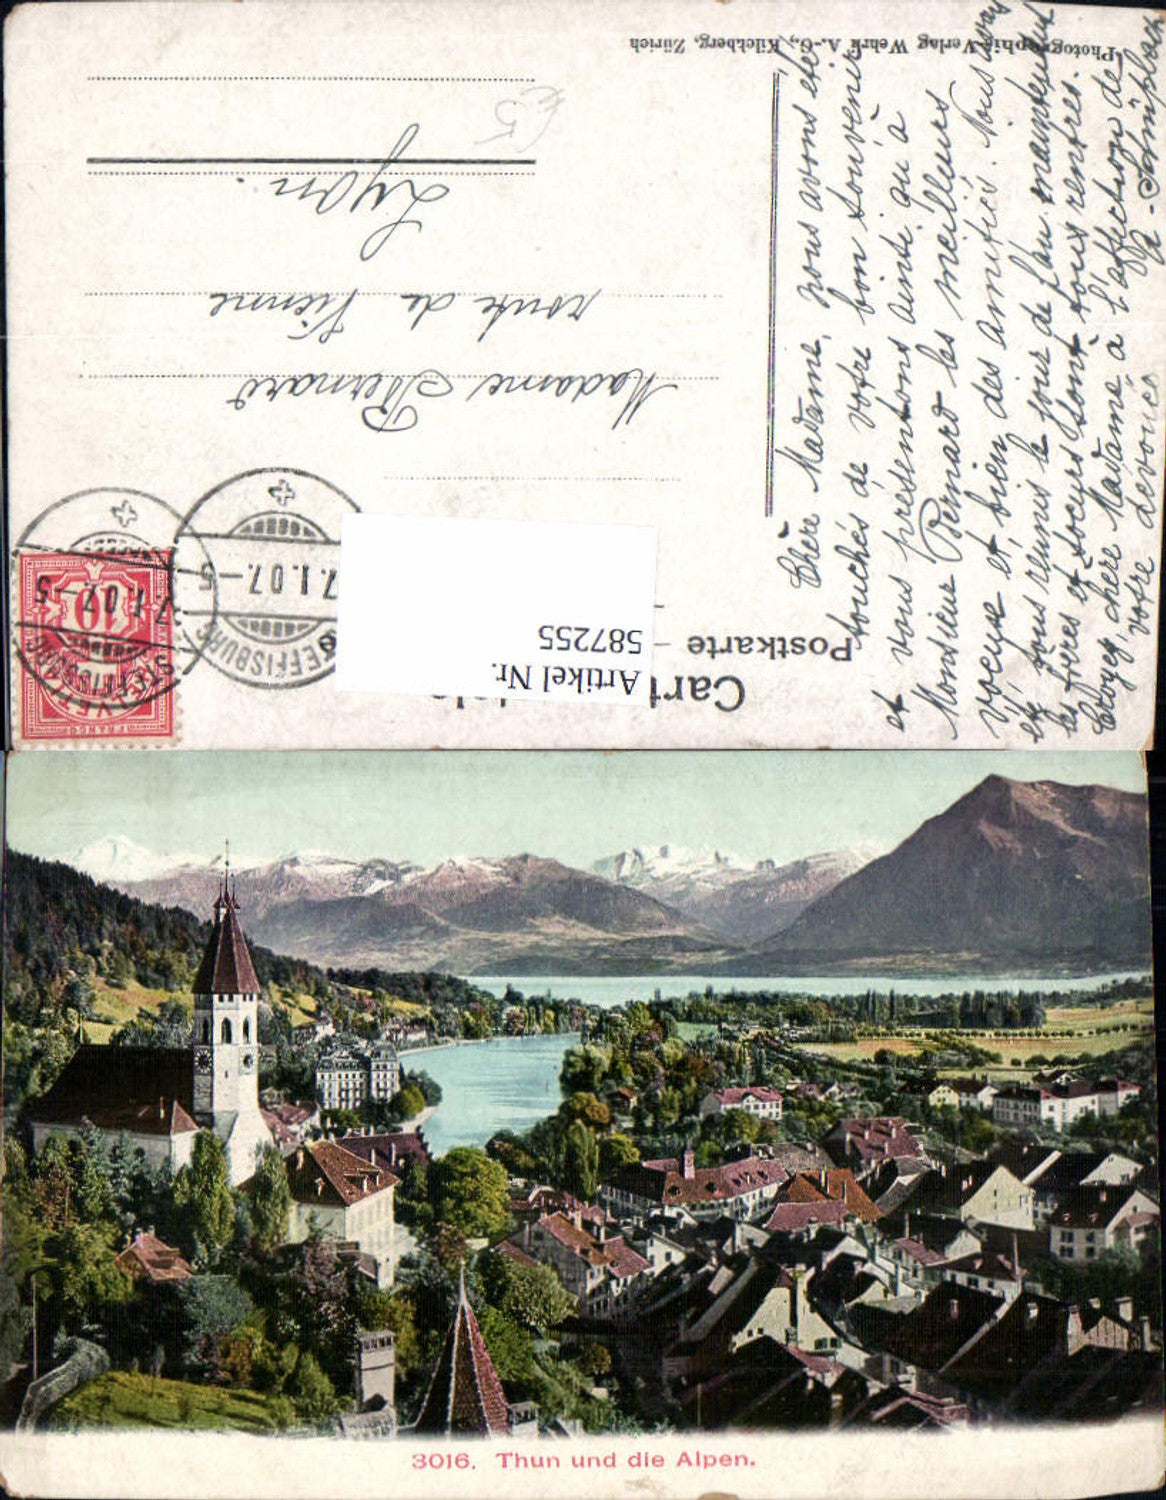 Photographie-Verlag Wehrli A.-G., Kilchberg, Zürich
Carte
Postkarte
Artikel Nr.
587255
Madame Bernard
route de Vienne
Lyon.
Chère Madame, nous avons été
touchés de votre bon souvenir
et vous présentons ainsi qu'à
Monsieur Bernard les meilleurs
voeux et bien des amitiés. Nous avons
été tous réunis le jour de l'an maintenant
les frères et soeurs sont tous rentrés.
Croyez, chère Madame à l'affection de
votre dévouée
STEFFISBURG
7.I.07.-5
STEFFISBURG
7.I.07.-5
HELVETIA
10
FRANCO
€5
3016. Thun und die Alpen.